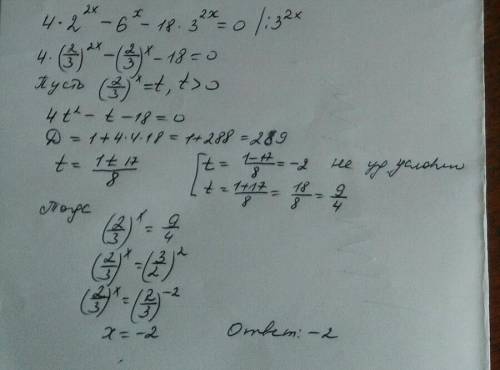 4 · 2^{2x} − 6^x − 18 · 3^{2x} = 0 / : 3^{2x}
4 · (2/3)^{2x} − (2/3)^x − 18 = 0
Пусть (2/3)^x = t, t > 0
4t² − t − 18 = 0
D = 1 + 4 · 4 · 18 = 1 + 288 = 289
t = (1 ± 17)/8 [ t = (1−17)/8 = −2 не уд условию
t = (1+17)/8 = 18/8 = 9/4
Тогда
(2/3)^x = 9/4
(2/3)^x = (3/2)^2
(2/3)^x = (2/3)^{−2}
x = −2 Ответ: −2